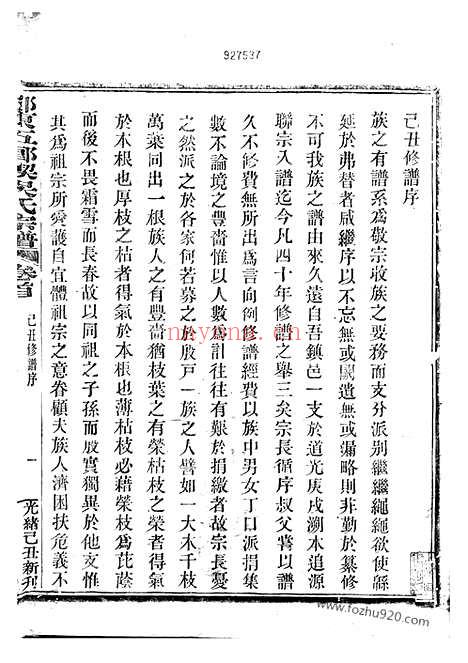 927537
己丑修譜序
族之有譜系爲敬宗收族之要務而支分派别繼繼繩繩欲使緜
延於弗替者咸繼序以不忘無或闕遺無或漏略則非勤於纂修
不可我族之譜由來久遠自吾鎮邑一支於道光庚戌溯木追源
聯宗入譜迄今凡四十年修譜之舉三矣宗長循序叔父耆以譜
久不修費無所出爲言向例修譜經費以族中男女丁口派捐集
數不論境之豐嗇惟以人數爲計往往有艱於捐繳者故宗長憂
之然派之於各家何若募之於殷戶一族之人譬如一大木千枝
萬葉同出一根族人之有豐嗇猶枝葉之有榮枯枝之榮者得氣
於本根也厚枝之枯者得氣於木根也薄枯枝必藉榮枝爲芘蔭
而後不畏霜雪而長春故以同祖之子孫而殷實獨異於他支惟
其爲祖宗所愛護自宜體祖宗之意眷顧夫族人濟困扶危義不
吳氏宗譜
卷首
己丑修譜序
一
光緒己丑新刋
www.fozhu920.com